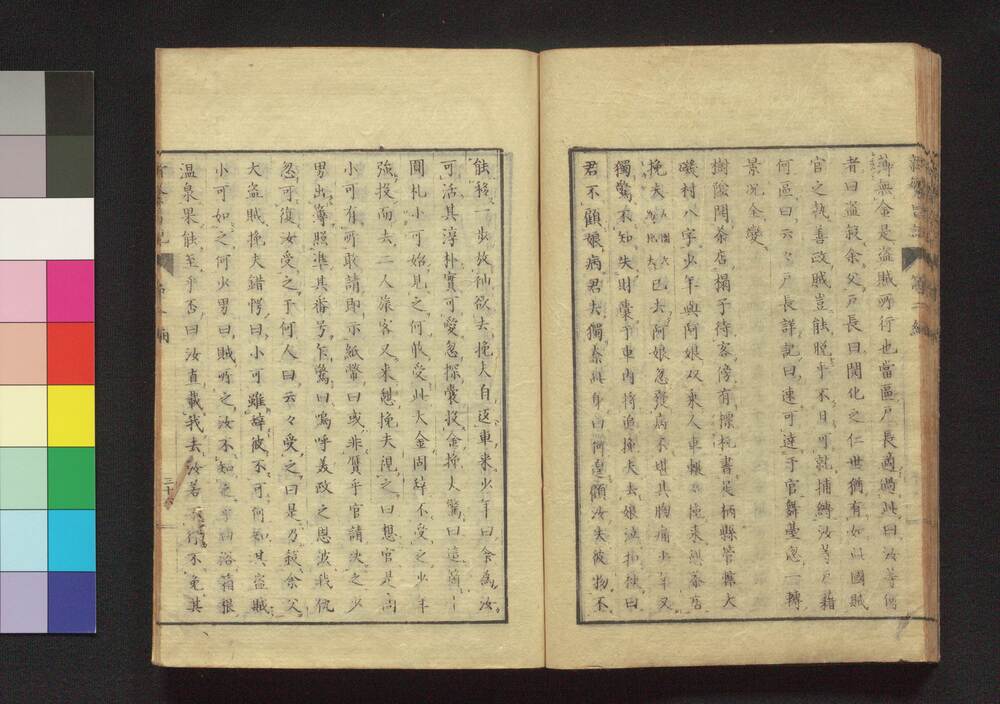 薄無金是盜賊所行也當區戶長適過此曰汝等何
者曰盜殺余父戶長曰開化之仁世猶有如此國賊
官之執善政賊豈能脫乎不日可就捕縛汝等戶籍
何區曰云々戶長詳記曰速可達于官舞臺忽一轉
景況全變
樹陰開茶店榻子待客傍有標杭書足柄縣管轄大
磯村八字少年與阿娘双乘人車輓來憩茶店
挽夫已去阿娘忽發病不堪其胸痛少年又
獨驚不知失財囊于車內將追挽夫去娘泣抑袂曰
君不顧娘病君去獨奈此身曰何遑顧汝失彼物不
能移一步放袖欲去挽夫自返車來少年曰余為汝
可活其淳朴實可愛忽探囊投金挽夫驚曰這箇
圓札小可始見之何收受此大金固辭不受之少年
強投而去二人旅客又來憩挽夫視之曰想官是
小可有所取請即示紙幣曰或非贋乎官請決之少
男出簿照準其番号乍驚曰嗚呼美政之恩波我仇
忽可復汝受之于何人曰云々受之曰是乃殺余父
大盜賊挽夫錯愕曰小可雖辭彼不可何知其盜賊
小可如之何少男曰賊所之汝不知之乎曰浴箱根
溫泉果能至乎否曰汝直載我去汝若不行不免其
三十六